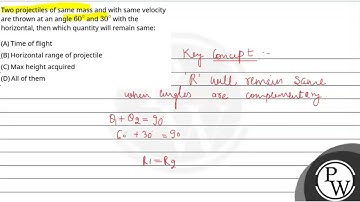 Two projectiles of same mass and with same velocity
are thrown at an angle 60° and 30° with the
horizontal, then which quantity will remain same:
(A) Time of flight
(B) Horizontal range of projectile
(C) Max height acquired
(D) All of them
Key Concept :-
'R' will remain same
when angles are complementary
θ1 + θ2 = 90
60 + 30 = 90
R1 = R2
PW